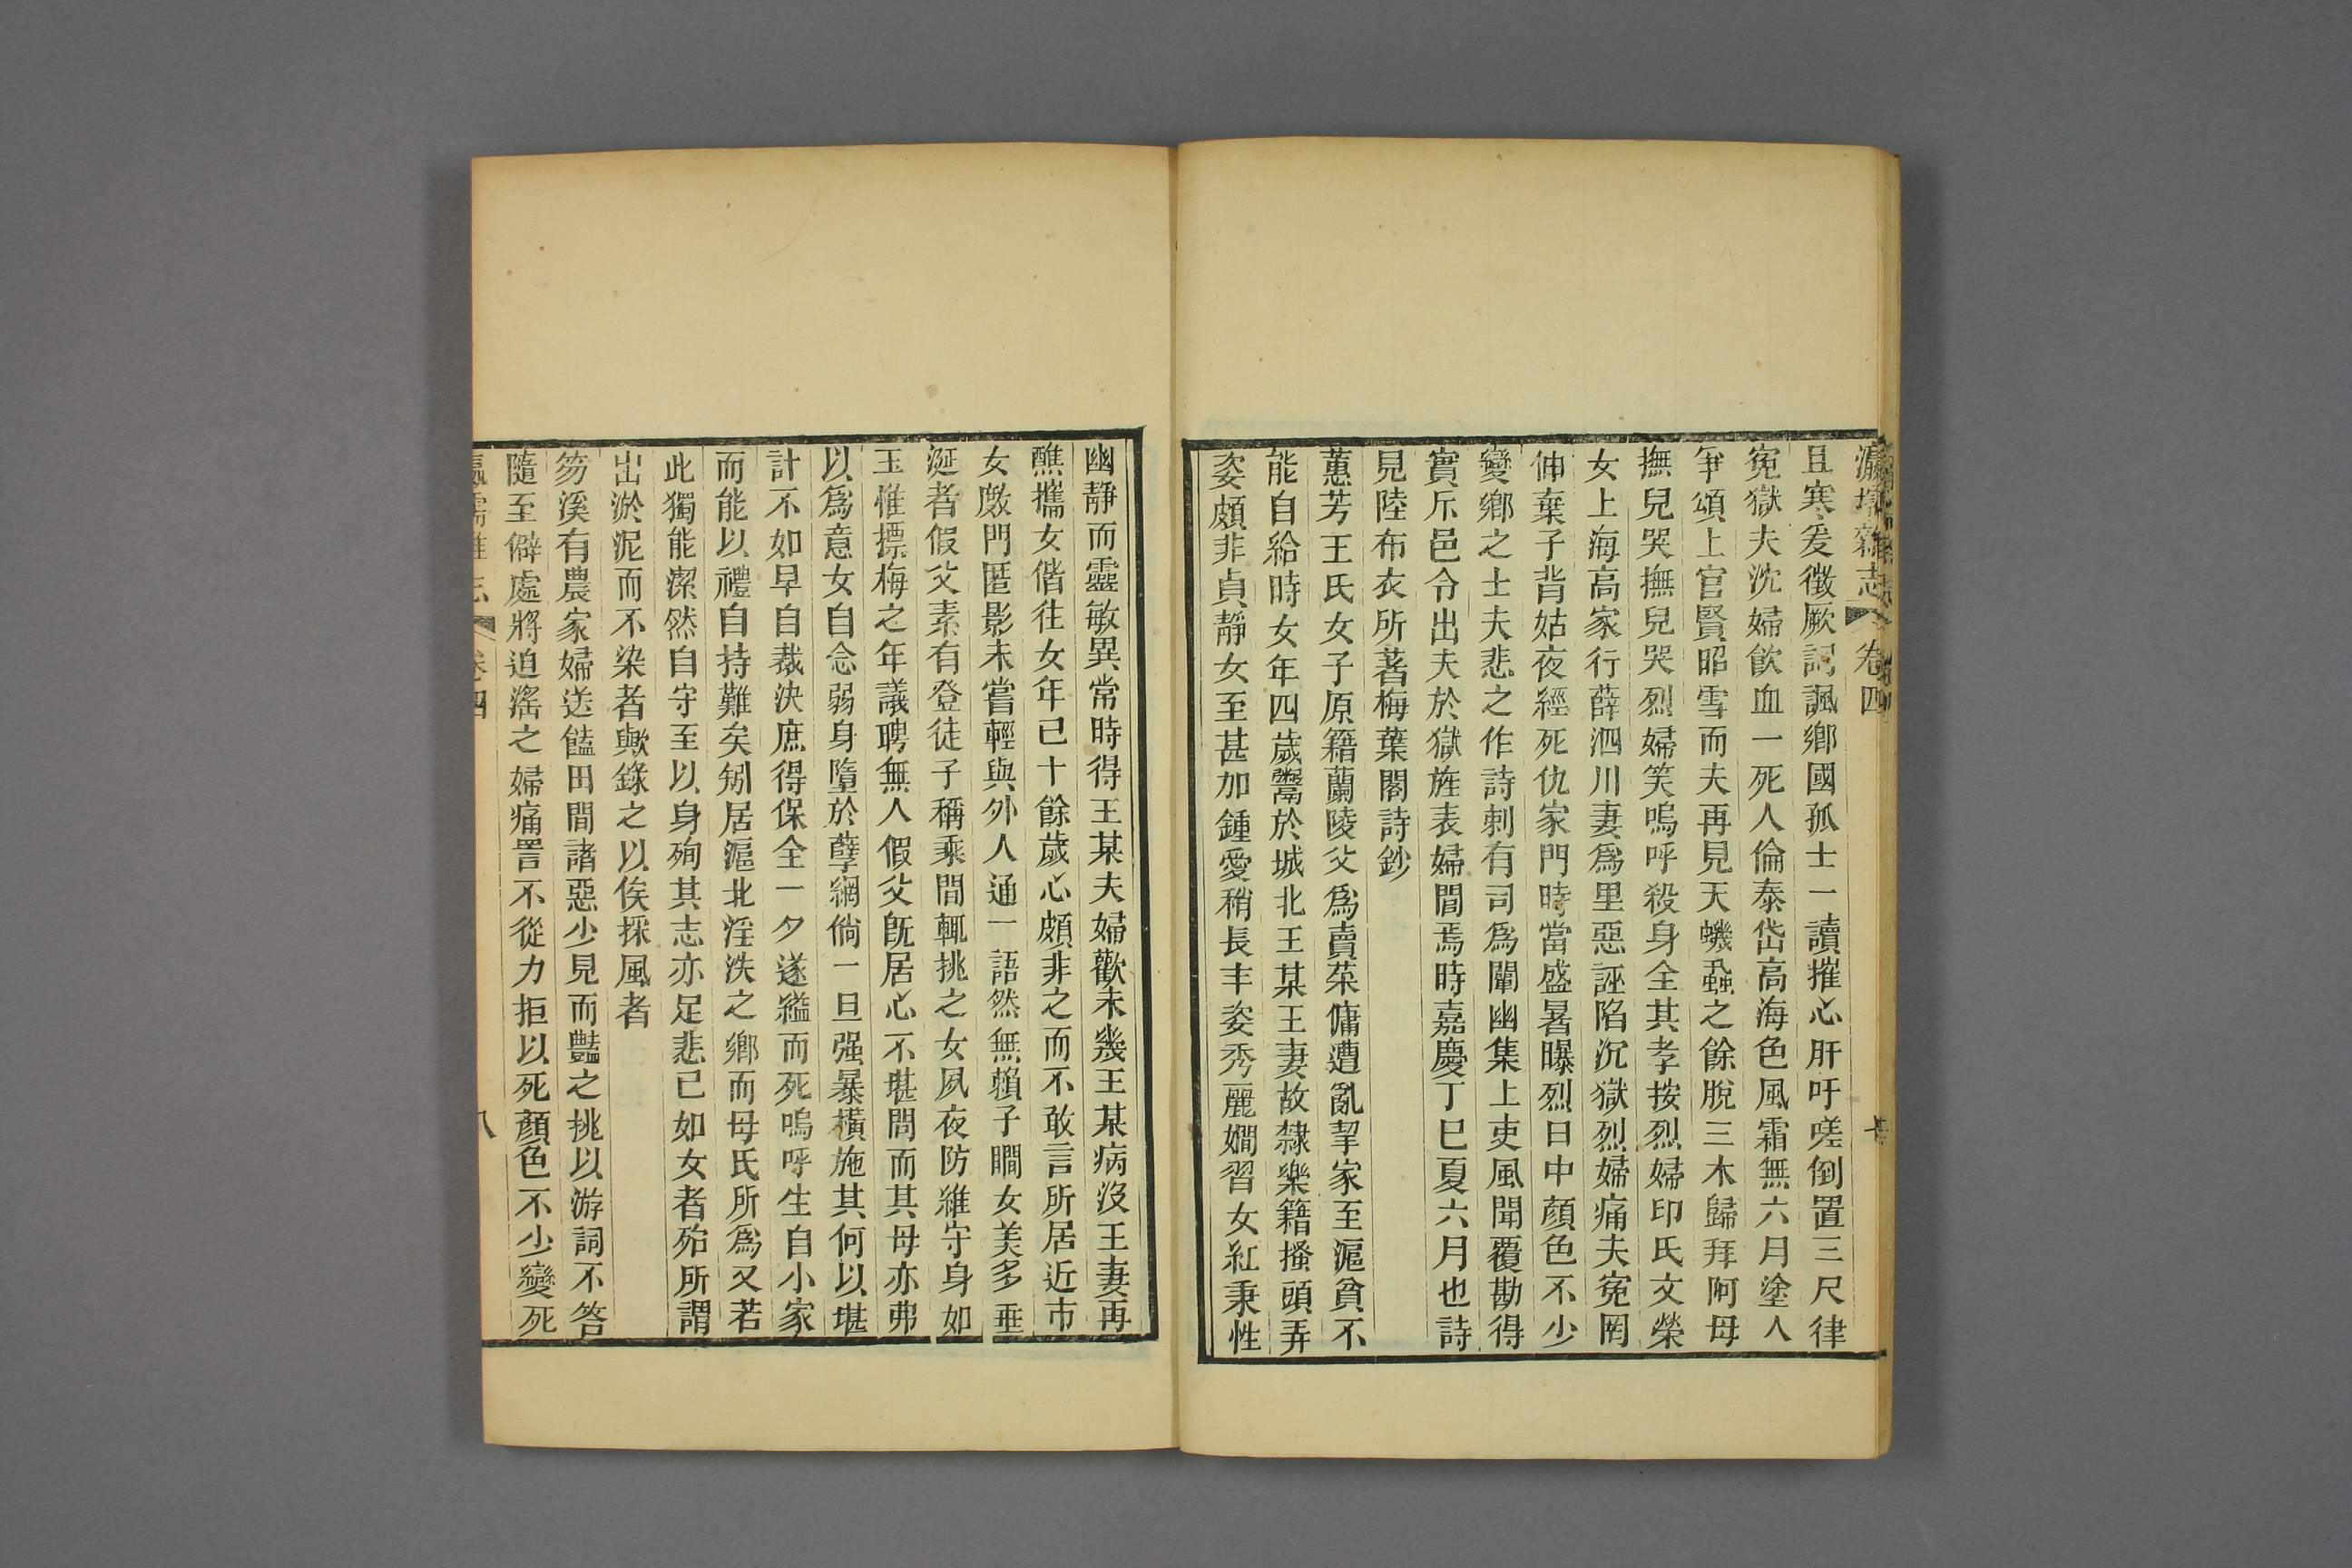 瀛壖雜志 卷四
且寒爰徵厥記諷鄉國孤士一讀摧心肝吁嗟倒置三尺律
冤獄夫沈婦飲血一死人倫泰岱高海色風霜無六月塗人
爭頌上官賢昭雪而夫再見天蟣蝨之餘脫三木歸拜阿母
撫兒哭撫兒哭烈婦笑嗚呼殺身全其孝按烈婦印氏文榮
女上海高家行薛泗川妻爲里惡誣陷沉獄烈婦痛夫冤罔
伸棄子背姑夜經死仇家門時當盛暑曝烈日中顏色不少
變鄉之士夫悲之作詩刺有司爲闡幽集上吏風聞覆勘得
實斥邑令出夫於獄旌表婦閭焉時嘉慶丁巳夏六月也詩
見陸布衣所著梅葉閣詩鈔
蕙芳王氏女子原籍蘭陵父爲賣菜傭遭亂挈家至滬貧不
能自給時女年四歲鬻於城北王某王妻故隸樂籍搔頭弄
姿頗非貞靜女至甚加鍾愛稍長丰姿秀麗嫺習女紅秉性
幽靜而靈敏異常時得王某夫婦歡未幾王某病沒王妻再
醮攜女偕往女年已十餘歲心頗非之而不敢言所居近市
女廄門匿影未嘗輕與外人通一語然無賴子瞷女美多垂
涎者假父素有登徒子稱乘間輒挑之女夙夜防維守身如
玉惟摽梅之年議聘無人假父旣居心不堪問而其母亦弗
以爲意女自念弱身墮於孽網倘一旦强暴橫施其何以堪
計不如早自裁決庶得保全一夕遂縊而死嗚呼生自小家
而能以禮自持難矣矧居滬北淫泆之鄉而母氏所爲又若
此獨能潔然自守至以身殉其志亦足悲已如女者殆所謂
出淤泥而不染者歟錄之以俟採風者
笏溪有農家婦送饁田間諸惡少見而豔之挑以游詞不答
隨至僻處將迫滛之婦痛詈不從力拒以死顏色不少變死
瀛壖雜志 卷四 八